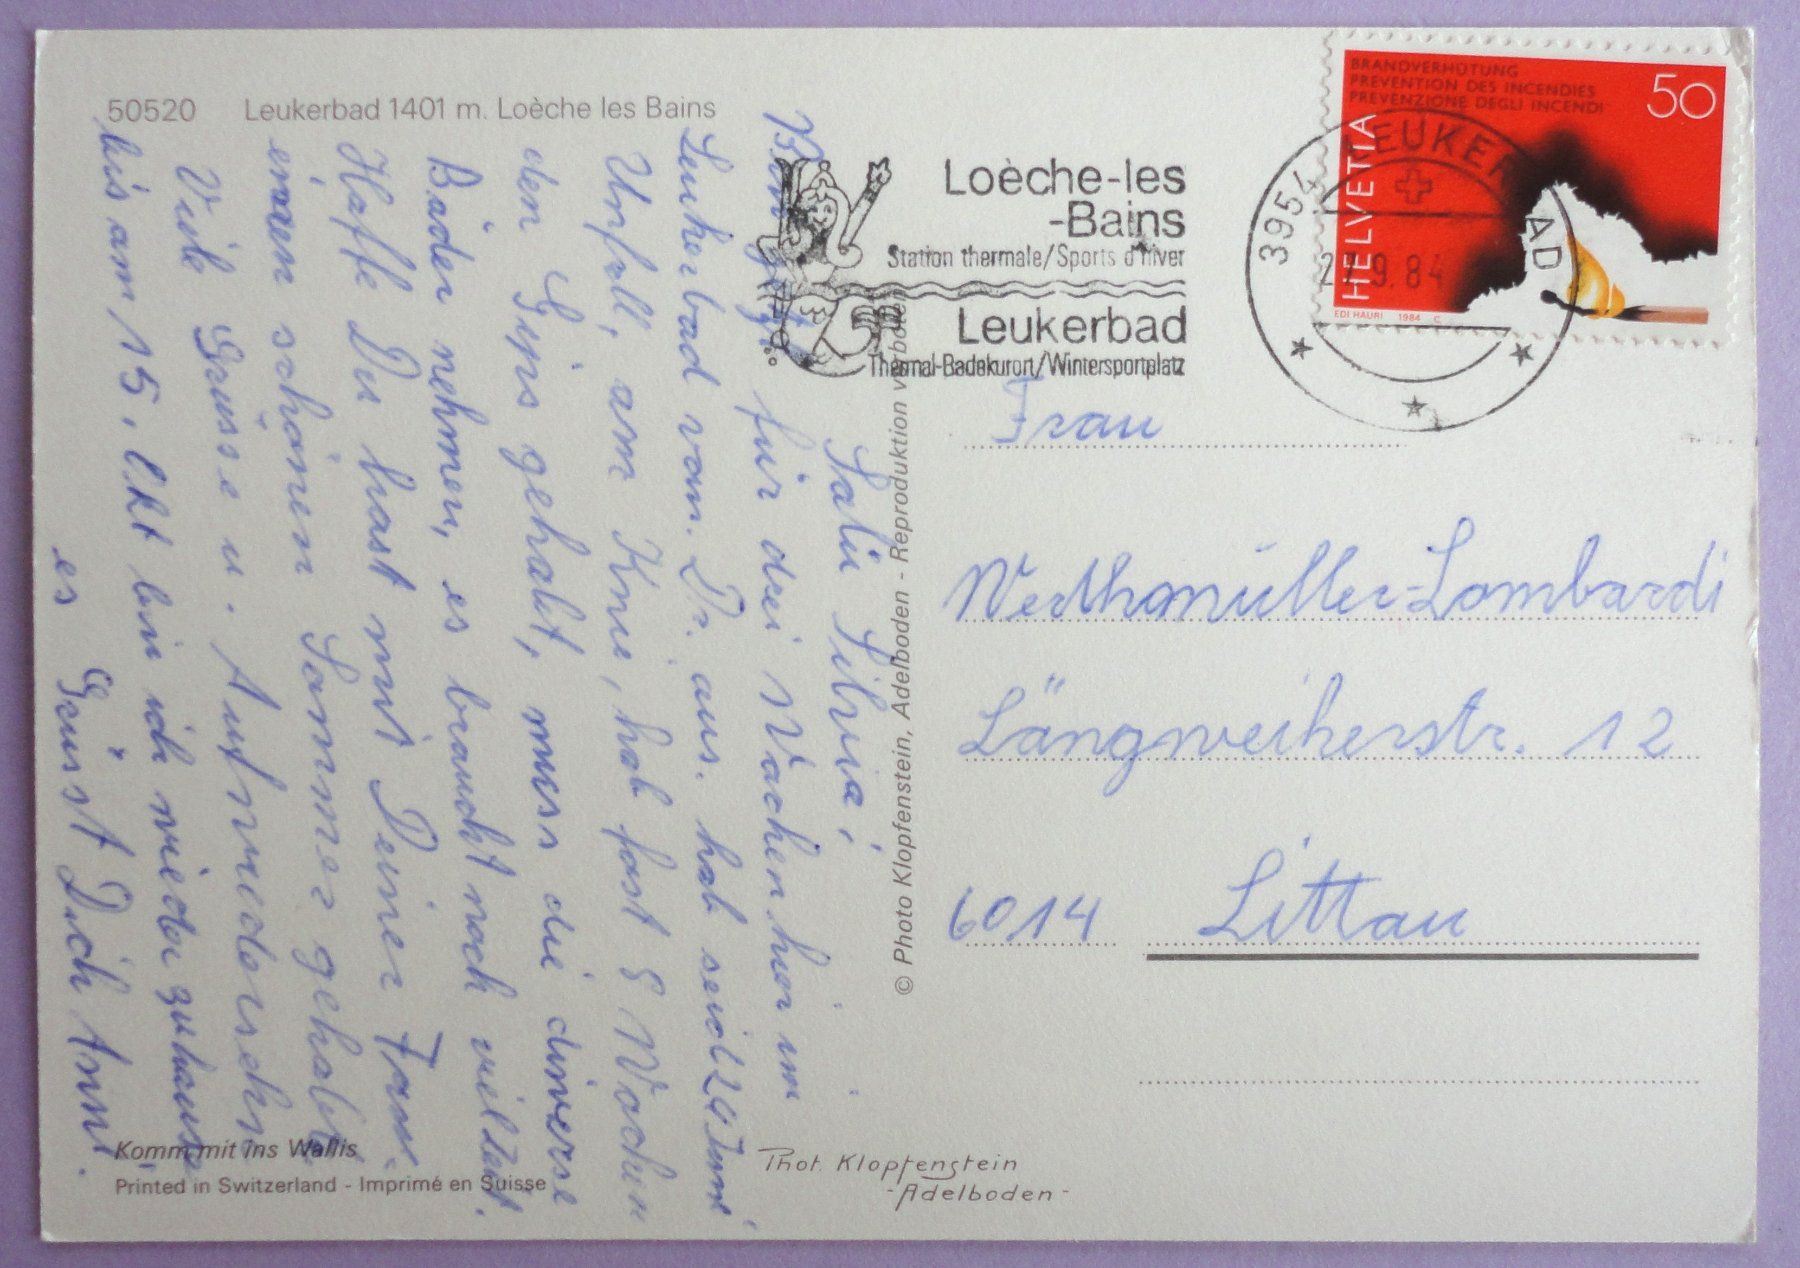 50520 Leukerbad 1401 m. Loèche les Bains
Salü Silvia,
Bin jetzt für drei Wochen hier im
Leukerbad vom. Dr. aus. hab seid 24 Juni
Unfall, am Knie, hab fast 8 Wochen
den Gips gehabt, muss die diverse
Bäder nehmen, es braucht noch viel Zeit.
Hoffe Du hast mit Deiner Fam.
einen schönen Sommer gehabt.
Viele Grüsse u. Aufwiedersehn
bis am 15. Okt bin ich wieder zuhause
es Grüsst Dich Anni.
Komm mit ins Wallis
Printed in Switzerland - Imprimé en Suisse
© Photo Klopfenstein, Adelboden - Reproduktion verboten
Phot. Klopfenstein
-Adelboden-
Loèche-les
-Bains
Station thermale/Sports d'hiver
Leukerbad
Thermal-Badekurort/Wintersportplatz
3954 LEUKERBAD
9.84
BRANDVERHÜTUNG
PREVENTION DES INCENDIES
PREVENZIONE DEGLI INCENDI
50
HELVETIA
EDI HAURI 1984 C
Frau
Werthmüller-Lombardi
Längweiherstr. 12
6014 Littau